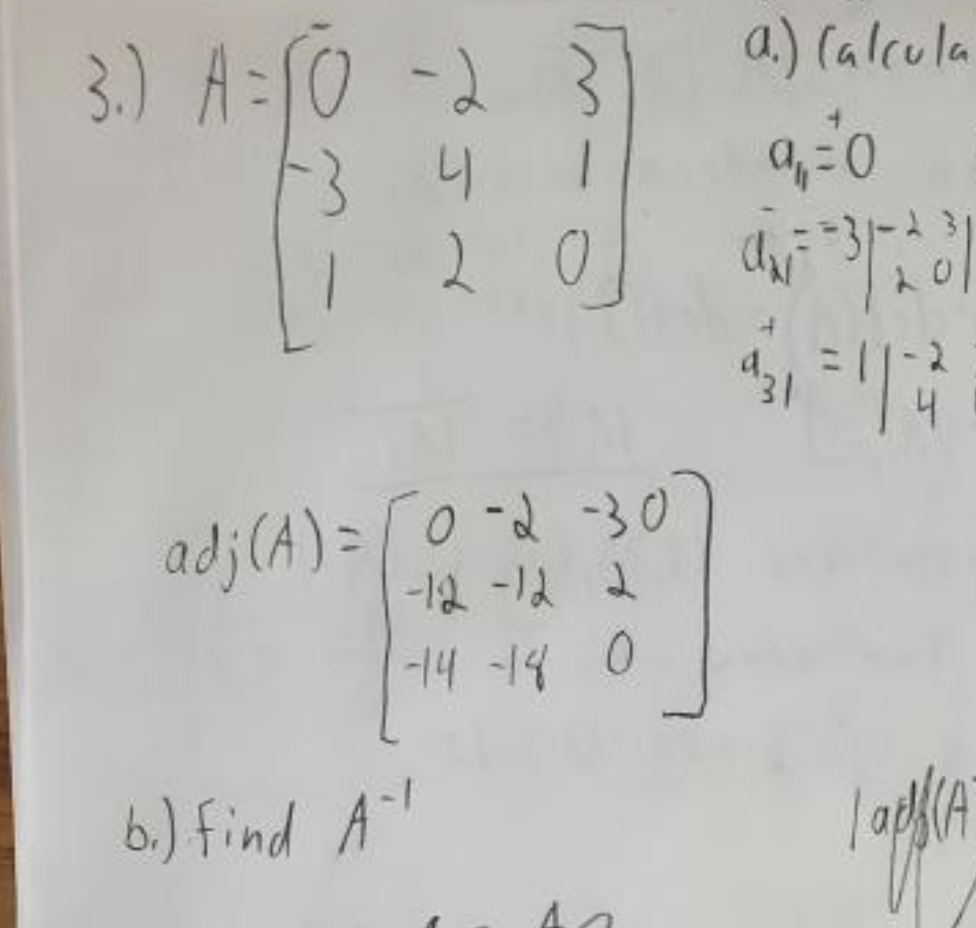 3.) A = [0 -2 3
-3 4 1
1 2 0]
a.) Calcula
a₁₁⁺ = 0
a₂₁⁻ = -3|-2 3
2 0|
a₃₁⁺ = 1|-2
4
adj(A) = [0 -2 -30
-12 -12 2
-14 -18 0]
b.) find A⁻¹